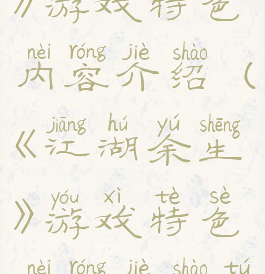 》游戏特色
nèi róng jiè shào
内容介绍（
jiāng hú yú shēng
《江湖余生
yóu xì tè sè
》游戏特色
nèi róng jiè shào tú